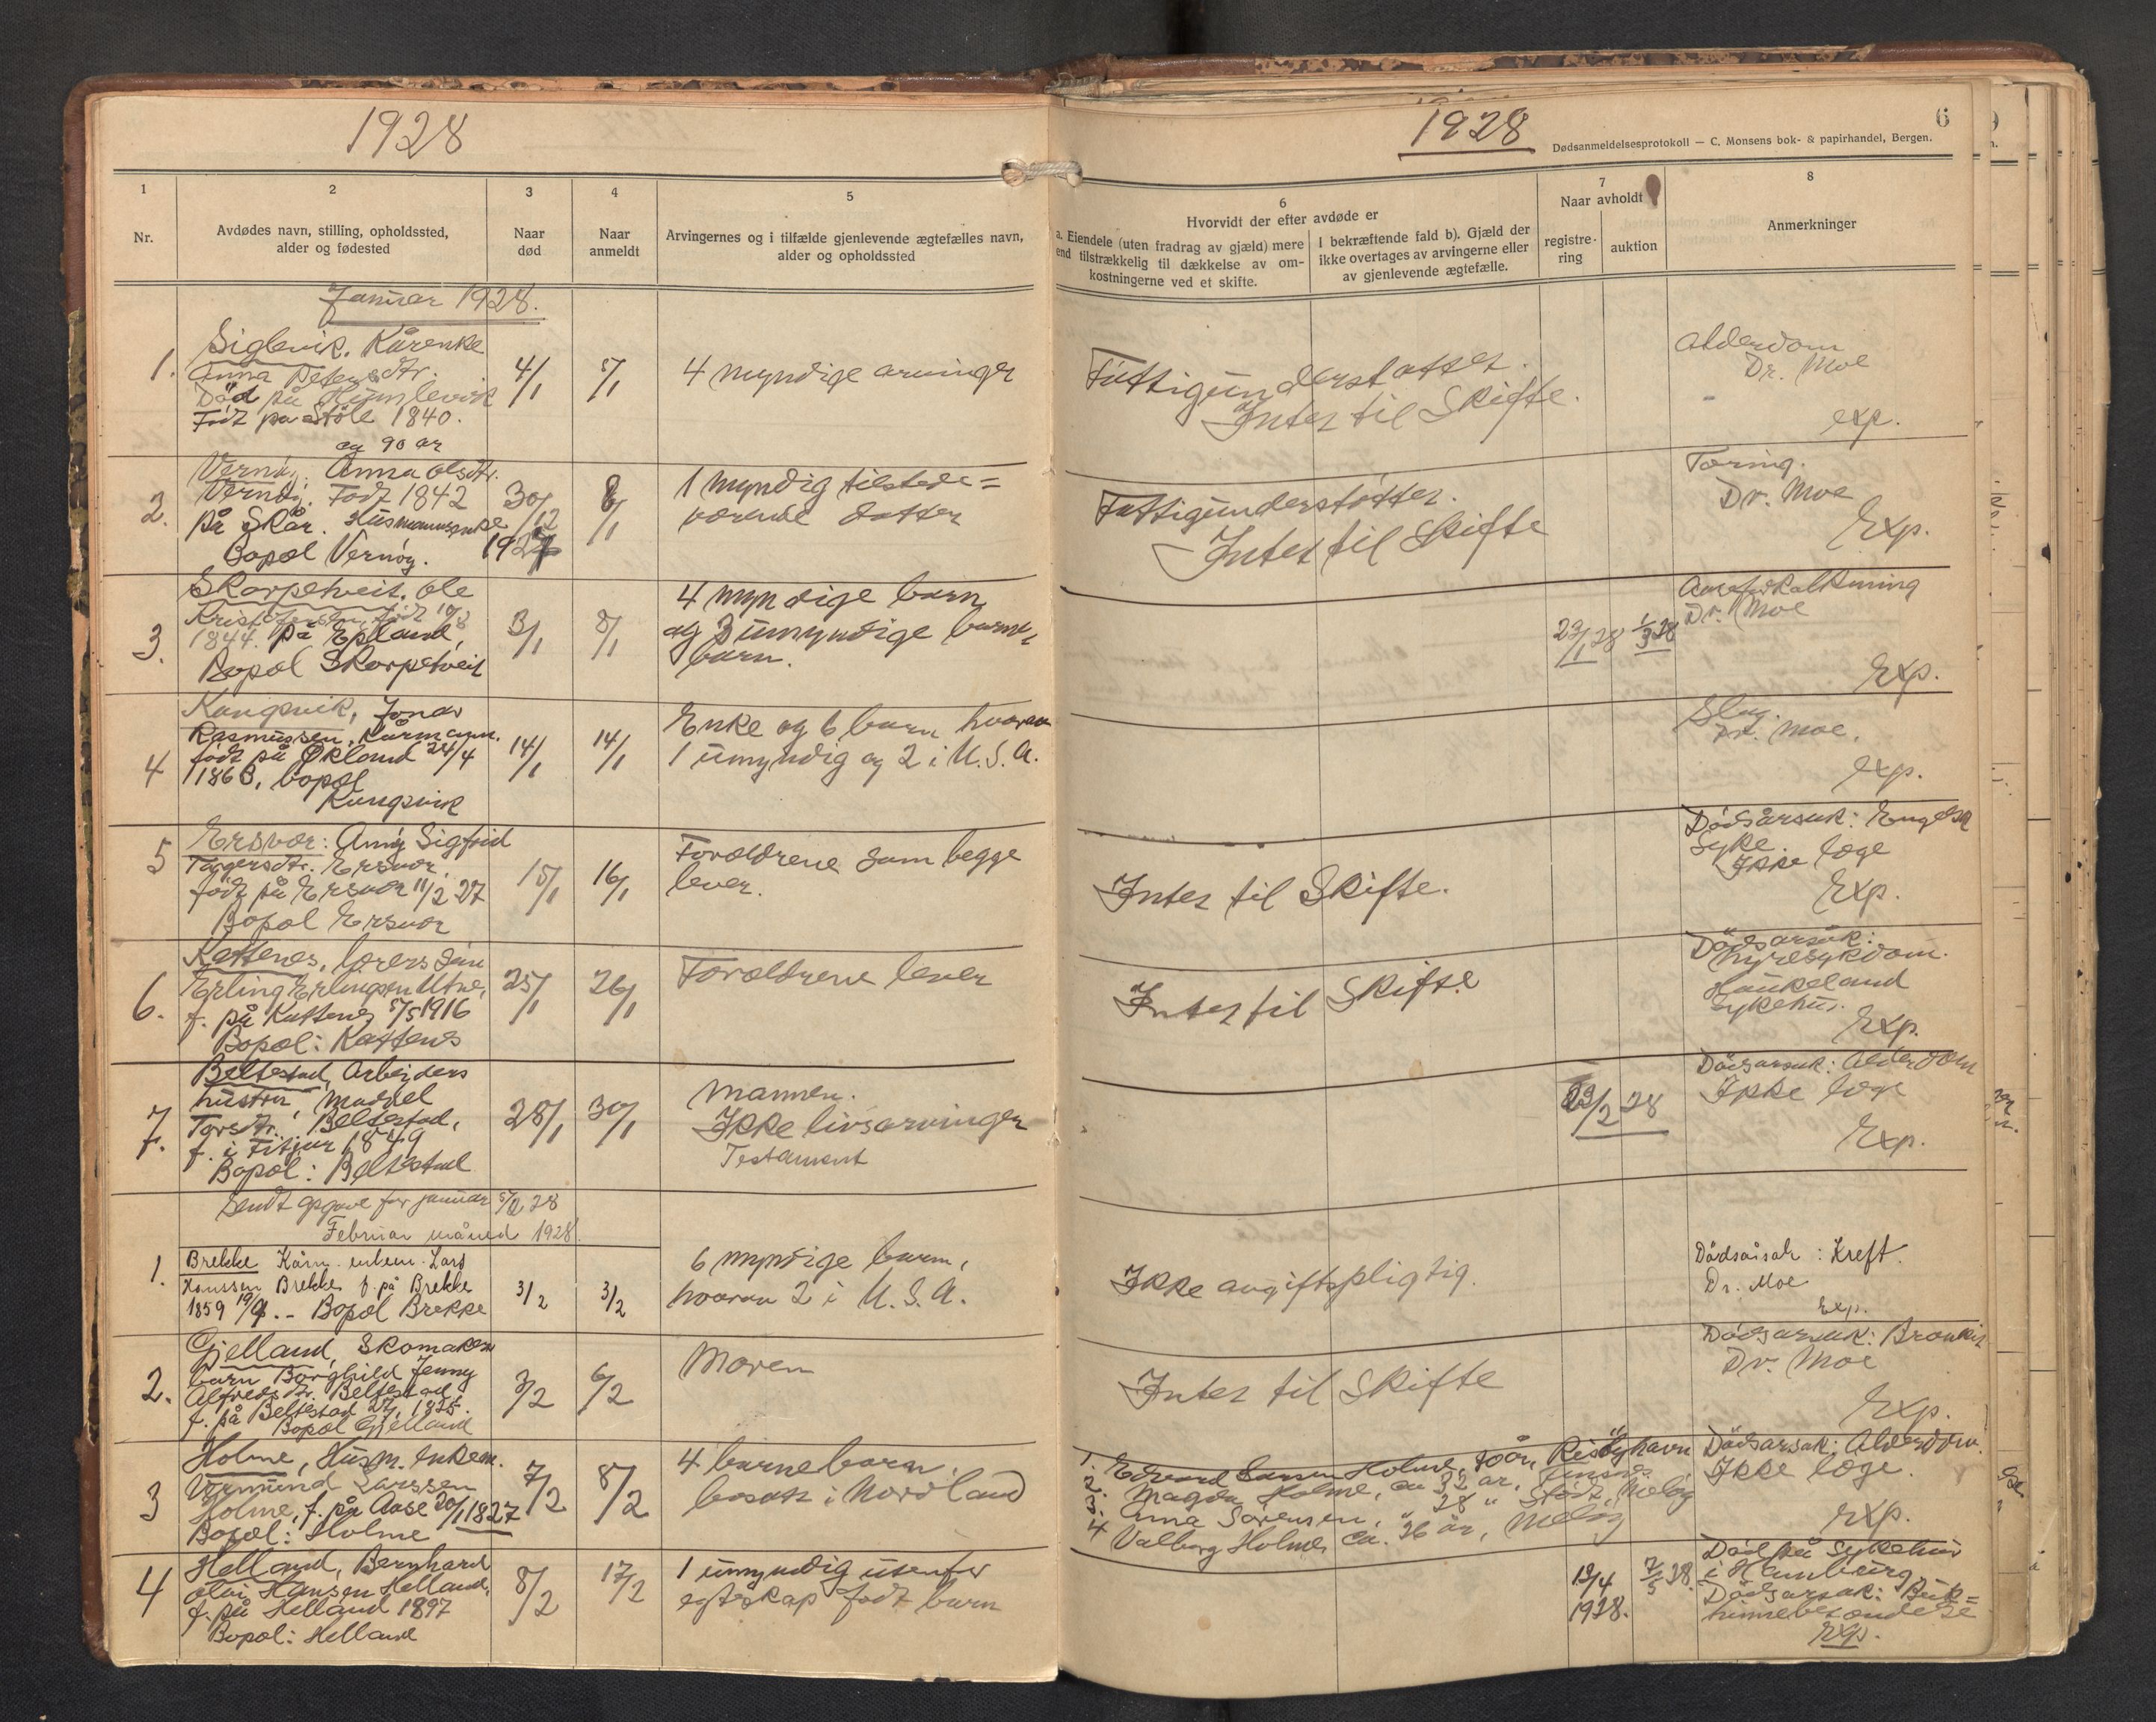 1928
1 2 3 4 5
Nr.
Avdødes navn, stilling, opholdssted,
alder og fødested
Naar
død
Naar
anmeldt
Arvingernes og i tilfælde gjenlevende ægtefælles navn,
alder og opholdssted
Januar 1928.
1.
Siglevik, Kårenke
Anna Petersdtr.
Död på
Født på Støle 1840.
4/1
5/1
4 myndige arvinger
og 90 år
2.
Vernöy. Anna Olsdtr.
Vernöy. Født 1842
på Skår. Husmannsenke
Bopæl Vernöy.
30/12
1927
8/1
1 myndig tilstede=
værende datter
3.
Skarpetveit, Ole
Kristoffersen, født 10/8
1844. på Epland,
Bopæl Skarpetveit
3/1
8/1
4 myndige barn
og 3 umyndige barne-
barn.
4
Kangsvik, Jonas
Rasmussen, Kårmann.
født på Økland 24/4
1863, bopæl
Kangsvik
14/1
14/1
Enke og 6 barn hvorav
1 umyndig og 2 i U.S.A.
5
Ersvær: Anny Sigfrid
Torgersdtr. Ersvær.
født på Ersvær 11/2 27
Bopæl Ersvær
15/1
16/1
Forældrene som begge
lever.
6.
Kattenes, lærers sön
Erling Erlingsen Utne,
f. på Kattenes 5/5 1916
Bopæl: Kattenes
25/1
26/1
Forældrene lever
7.
Beltestad, Arbeiders
hustru,
Torsdtr. Beltestad,
f. i Fitjar 1849
Bopæl: Beltestad
28/1
30/1
Mannen.
Ikke livsarvinger
Testament
Sendt opgave for januar 5/2 28
Februar måned 1928.
1.
Brekke Kårm. enkem. Lars
Hanssen Brekke f. på Brekke
1859 19/9. -- Bopæl Brekke
3/2
3/2
6 myndige barn,
hvorav 2 i U.S.A.
2.
Gjelland, Skomakers
barn Borghild Jenny
Alfredsdtr. Beltestad
f. på Beltestad
Bopæl Gjelland
3/2
6/2
Moren
3
Holme, Husm. enkem.
Vermund Larssen
Holme, f. på Aase 20/1 1827
Bopæl: Holme
7/2
8/2
4 barnebarn,
bosatt i Nordland
4
Helland, Bernhard
Olai Hansen Helland,
f. på Helland 1897
Bopæl: Helland
8/2
17/2
1 umyndig utenfor
egteskap født barn
1928
6
Dødsanmeldelsesprotokoll — C. Monsens bok- & papirhandel, Bergen.
6
Hvorvidt der efter avdøde er
a. Eiendele (uten fradrag av gjæld) mere
end tilstrækkelig til dækkelse av om-
kostningerne ved et skifte.
I bekræftende fald b). Gjæld der
ikke overtages av arvingerne eller
av gjenlevende ægtefælle.
7
Naar avholdt
registre-
ring
auktion
8
Anmerkninger
Fattigunderstøttet.
Intet til Skifte.
Alderdom
Dr. Moe
exp.
Fattigunderstøttet.
Intet til Skifte
Tæring.
Dr. Moe
Exp.
23/1 28
1/3 28
Dr. Moe
Exp.
Slag.
Dr. Moe.
exp.
Intet til Skifte.
Dödsårsak: Engelsk
Syke.
Ikke læge
Exp.
Intet til Skifte
Dödsårsak:
Nyresykdom.
Haukeland
Sykehus.
Exp.
23/2 28
Dödsårsak: Alderdom
Ikke læge
Exp.
Ikke avgiftspligtig.
Dödsårsak: Kreft.
Dr. Moe
Exp.
Intet til Skifte
Dödsårsak: Bronkit
Dr. Moe
Exp.
1. Edvard Larsen Holme, Risöyhavn
2. Magda Holme, ca 32 år,
3. Anna Sørensen, " 28 " Støtt, Meløy
4 Valborg Holme, ca. 26 år, Meløy
Dödsårsak: Alderdom.
Ikke læge.
exp.
12/4
1928.
7/5 28.
Död på Sykehus
i Hamburg.
Dödsårsak: Buk=
hinnebetændelse
Exp.